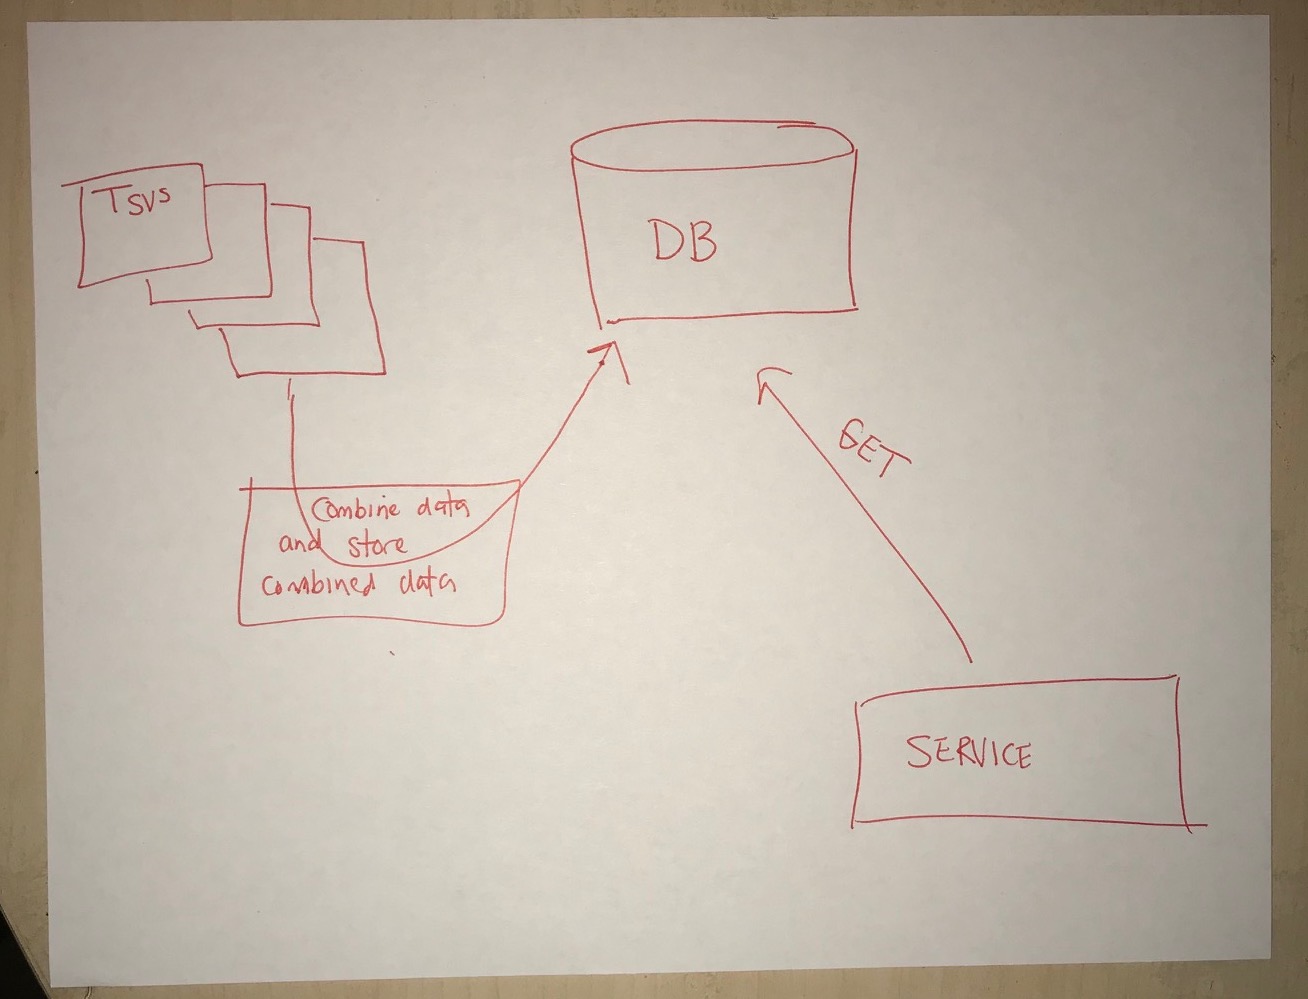 TSVs
DB
GET
Combine data
and store
combined data
SERVICE